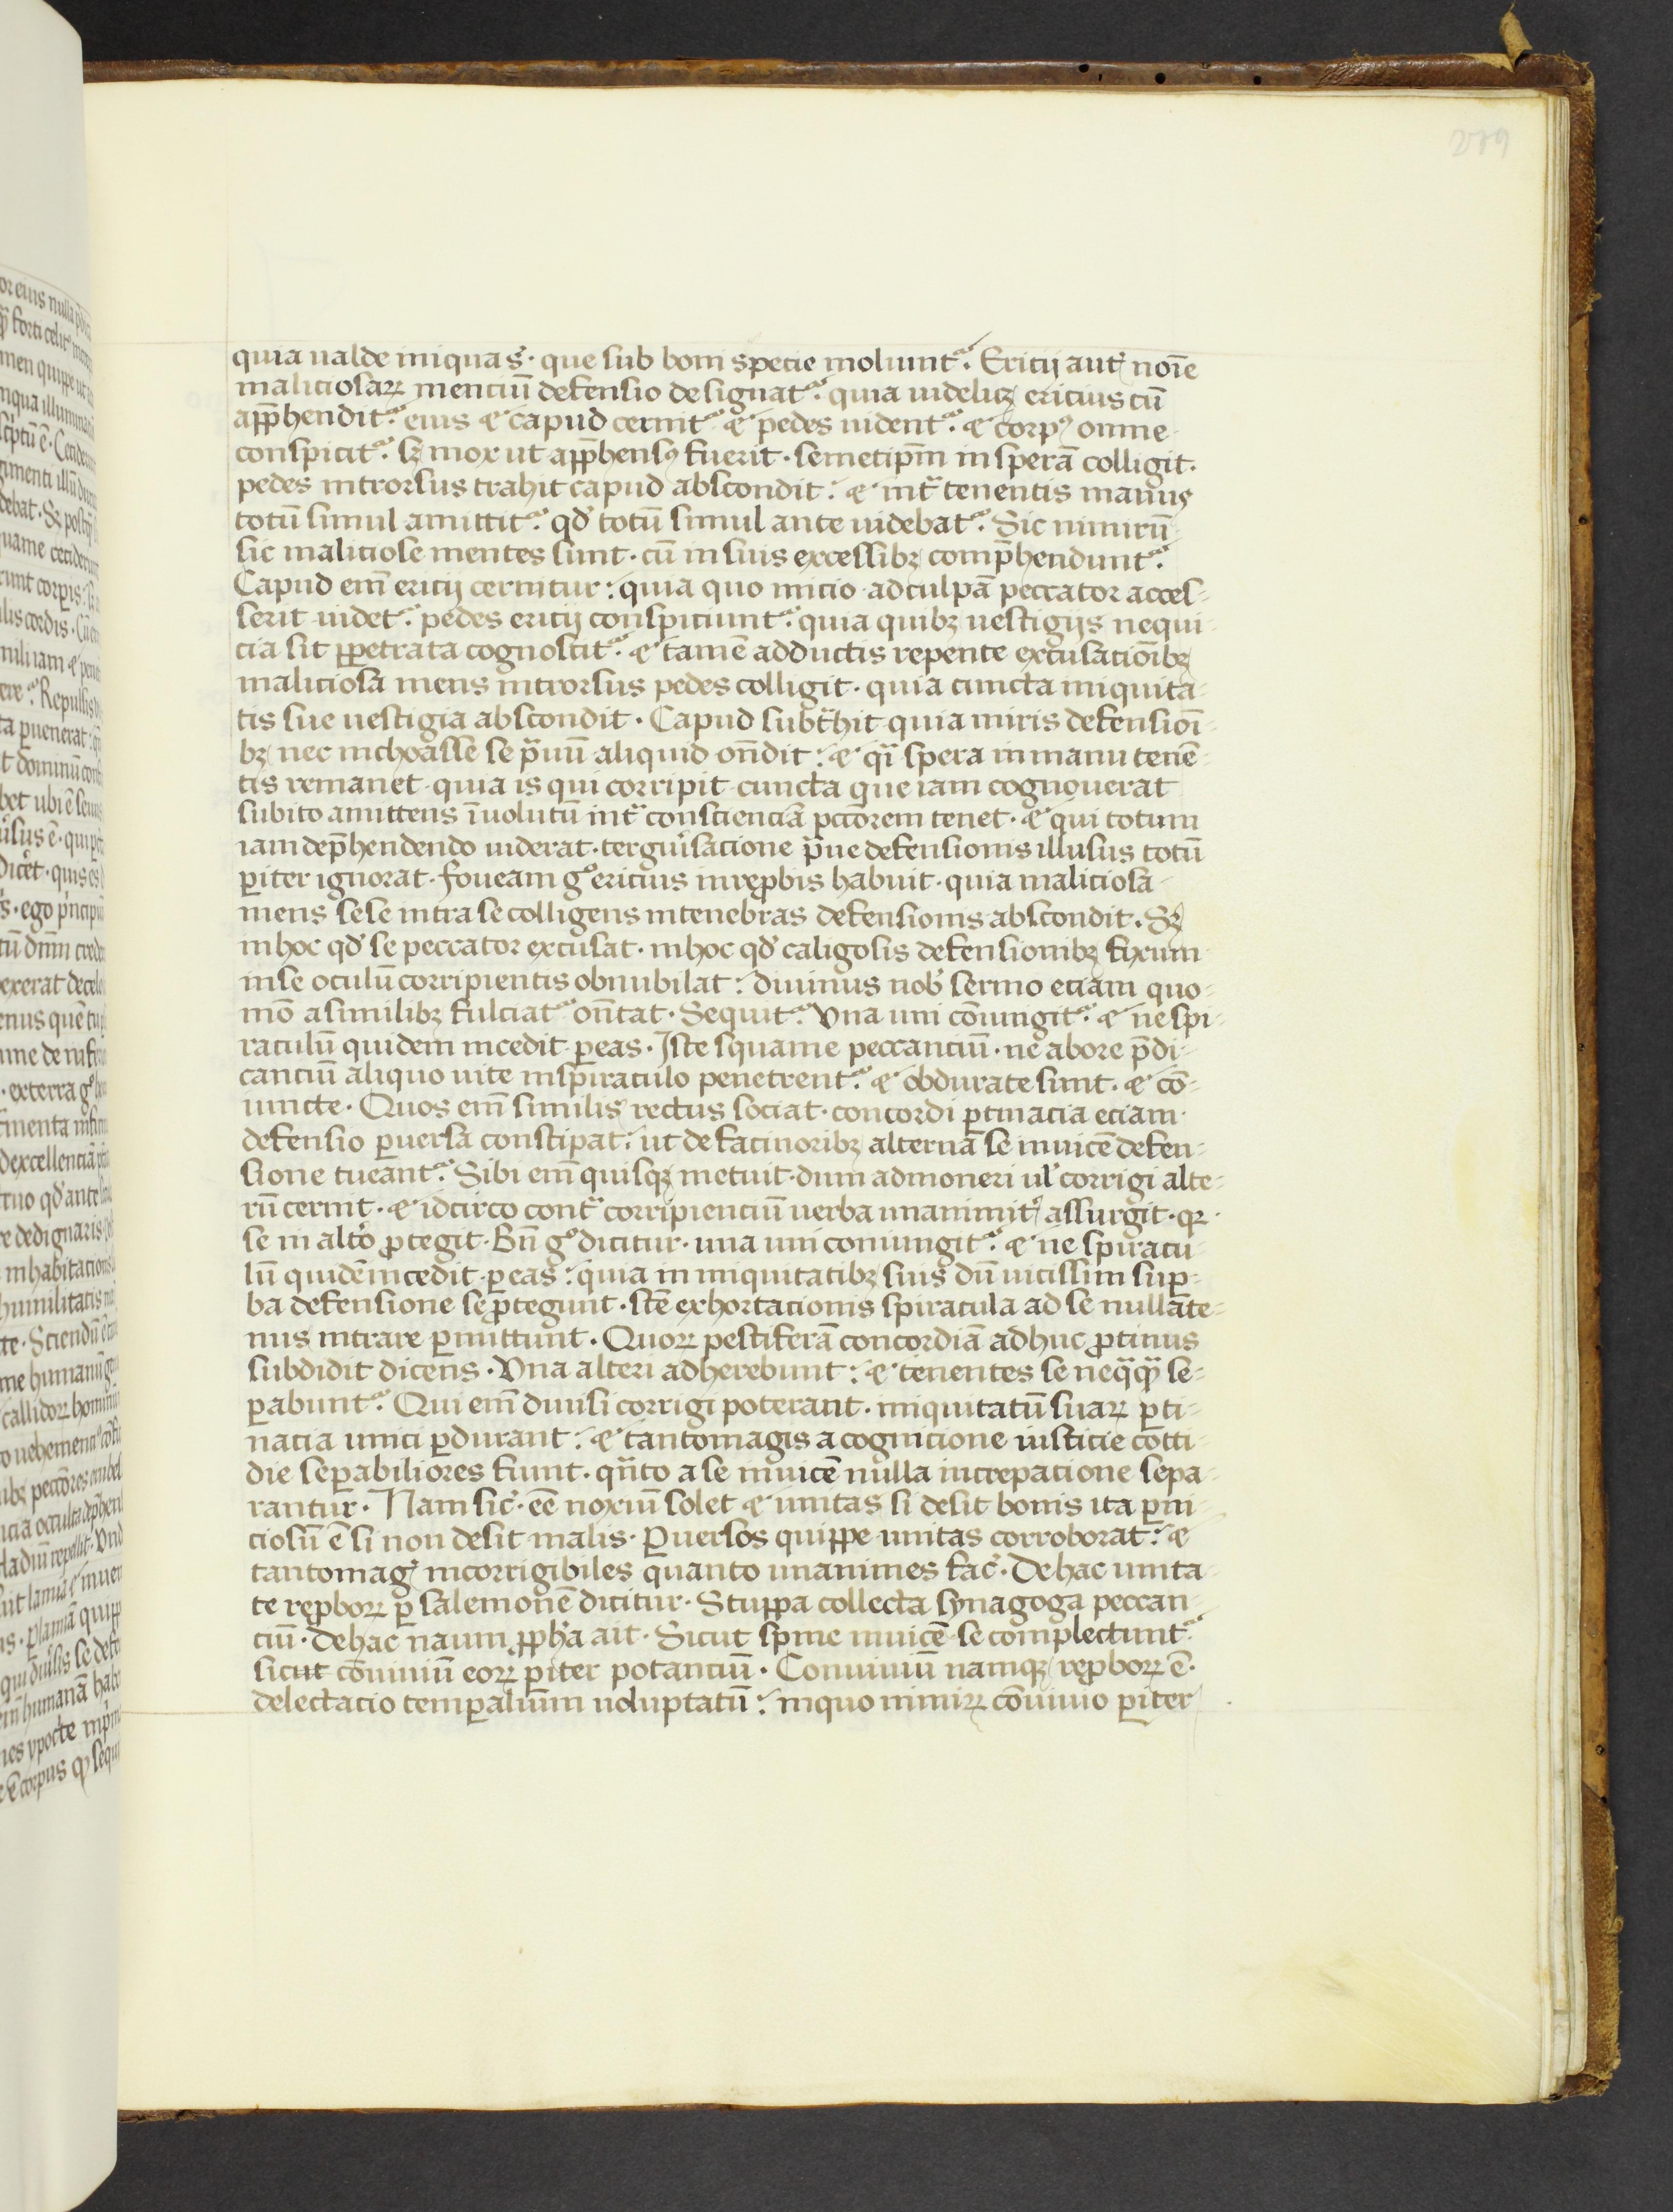 279
quia ualde iniqua s̄· que sub boni specie moliunt᷑. Ericij aut̄ noīe
maliciosaꝝ menciū defensio designat᷑. quia uidelicꝫ ericius cū
app̄hendit᷑. eius ⁊ capud cernit᷑ ⁊ pedes uident᷑. ⁊ corpꝰ omne
conspicit᷑. sꝫ mox ut app̄hensꝰ fuerit· semetip̄m in sperā colligit.
pedes introrsus trahit capud abscondit: ⁊ int̄ tenentis manus
totū simul amittit᷑. qd̄ totū simul ante uidebat᷑. Sic nimirū
sic maliciose mentes sunt· cū in suis excessibꝫ comp̄hendunt᷑.
Capud em̄ ericij cernitur: quia quo inicio ad culpā peccator acces-
serit uidet᷑. pedes ericij conspiciunt᷑. quia quibꝫ uestigijs nequi-
cia sit ꝑpetrata cognoscit᷑. ⁊ tamē adductis repente excusacioībꝫ
maliciosa mens introrsus pedes colligit· quia cuncta iniquita-
tis sue uestigia abscondit. Capud subt̄hit quia miris defensioī-
bꝫ nec inchoasse se p̄uū aliquid on̄dit: ⁊ q̄i spera in manu tenē-
tis remanet quia is qui corripit cuncta que iam cognouerat
subito amittens īuolutū int̄ conscienciā pccōrem tenet· ⁊ qui totum
iam dep̄hendendo uiderat· terguīsacione p̄ue defensionis illusus totū
ꝑiter ignorat· foueam gͦ ericius in reꝓbis habuit· quia maliciosa
mens sese intra se colligens in tenebras defensionis abscondit. Sꝫ
in hoc qd̄ se peccator excusat· in hoc qd̄ caligosis defensionibꝫ fixum
in se oculū corripientis obnubilat: diuinus nob̄ sermo eciam quo-
mō a similibꝫ fulciat᷑ on̄tat· Sequit᷑. Vna uni cōiungit᷑. ⁊ ne spi-
raculū quidem incedit ꝑ eas. Iste squame peccanciū· ne ab ore p̄di-
canciū aliquo uite inspiraculo penetrent᷑. ⁊ obdurate sunt· ⁊ cō-
iuncte· Quos em̄ similis rectus sociat· concordi ꝑtinacia eciam
defensio ꝑuersa constipat: ut de facinoribꝫ alterna se inuicē defen-
sione tueant᷑. Sibi em̄ quisqꝫ metuit dum admoneri ul̄ corrigi alte-
rū cernit· ⁊ idcirco cont̄ corripienciū uerba unanimit̄ assurgit· qꝛ
se in alto ꝓtegit· Bn̄ gͦ dicitur· una uni coniungit᷑. ⁊ ne spiracu-
lū quidē incedit ꝑ eas: quia in iniquitatibꝫ suis dū uicissim suꝑ-
ba defensione se ꝓtegunt· scē exhortacionis spiracula ad se nullate-
nus intrare ꝑmittunt. Quoꝝ pestiferā concordiā adhuc ꝓtinus
subdidit dicens. Vna alteri adherebunt: ⁊ tenentes se neq̄q̄ se-
ꝑabunt᷑. Qui em̄ diuisi corrigi poterant· iniquitatū suaꝝ ꝑti-
nacia uniti ꝑdurant: ⁊ tantomagis a cognicione iusticie cotti-
die seꝑabiliores fiunt· qn̄to a se inuicē nulla increpacione sepa-
rantur. Nam sic̄ ēe noxiū solet ⁊ unitas si desit bonis ita ꝑni-
ciosū ē si non desit malis· Ꝑuersos quippe unitas corroborat: ⁊
tantomaḡ incorrigibiles quanto unanimes fac̄. De hac unita-
te reꝓboꝝ ꝑ salemonē dicitur. Stuppa collecta synagoga peccan-
ciū. De hac naum ꝓph̄a ait. Sicut spine inuicē se complectunt᷑
sicut cōuiuiū eoꝝ ꝑiter potanciū. Conuiuiū namqꝫ reꝓboꝝ ē·
delectacio temꝑalium uoluptatū: in quo nimiꝝ cōuiuio ꝑiter